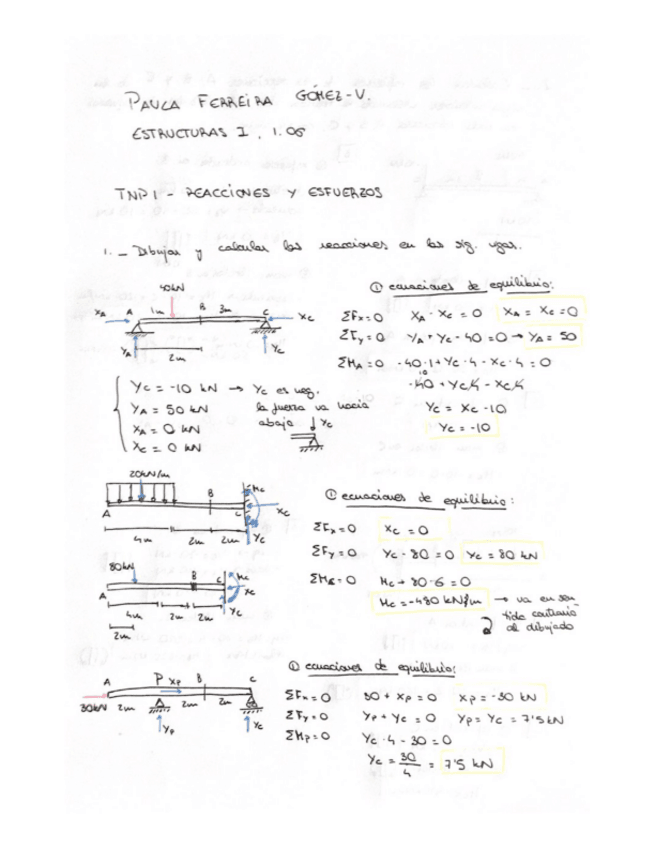 PAULA FERREIRA GÓMEZ-V.
ESTRUCTURAS I . 1.06
TNP1 - REACCIONES Y ESFUERZOS
1. _ Dibujar y calcular las reacciones en las sig. vigas.
① ecuaciones de equilibrio:
40kN
XA A 1m B 3m C XC
YA 2m YC
ΣFx=0 XA - XC = 0 XA = XC = 0
ΣFy=0 YA + YC - 40 = 0 → YA = 50
ΣMA=0 -40·1 + YC·4 - XC·4 = 0
-40 + YC4 - XC4
10
YC = XC - 10
YC = -10
YC = -10 kN → YC es neg.
la fuerza va hacia
abajo YC
YA = 50 kN
XA = 0 kN
XC = 0 kN
20kN/m
A B C MC XC YC
4m 2m 2m
① ecuaciones de equilibrio:
ΣFx=0 XC = 0
ΣFy=0 YC - 80 = 0 YC = 80 kN
ΣMC=0 MC + 80·6 = 0
MC = -480 kN/m → va en sen
tido contrario
al dibujado
80kN
A B C MC XC YC
4m 2m 2m
2m
① ecuaciones de equilibrio:
A P XP B C
30kN 2m 2m 2m
YP YC
ΣFx=0 30 + XP = 0 XP = -30 kN
ΣFy=0 YP + YC = 0 YP = YC = 7'5 kN
ΣMP=0 YC·4 - 30 = 0
YC = 30/4 = 7'5 kN